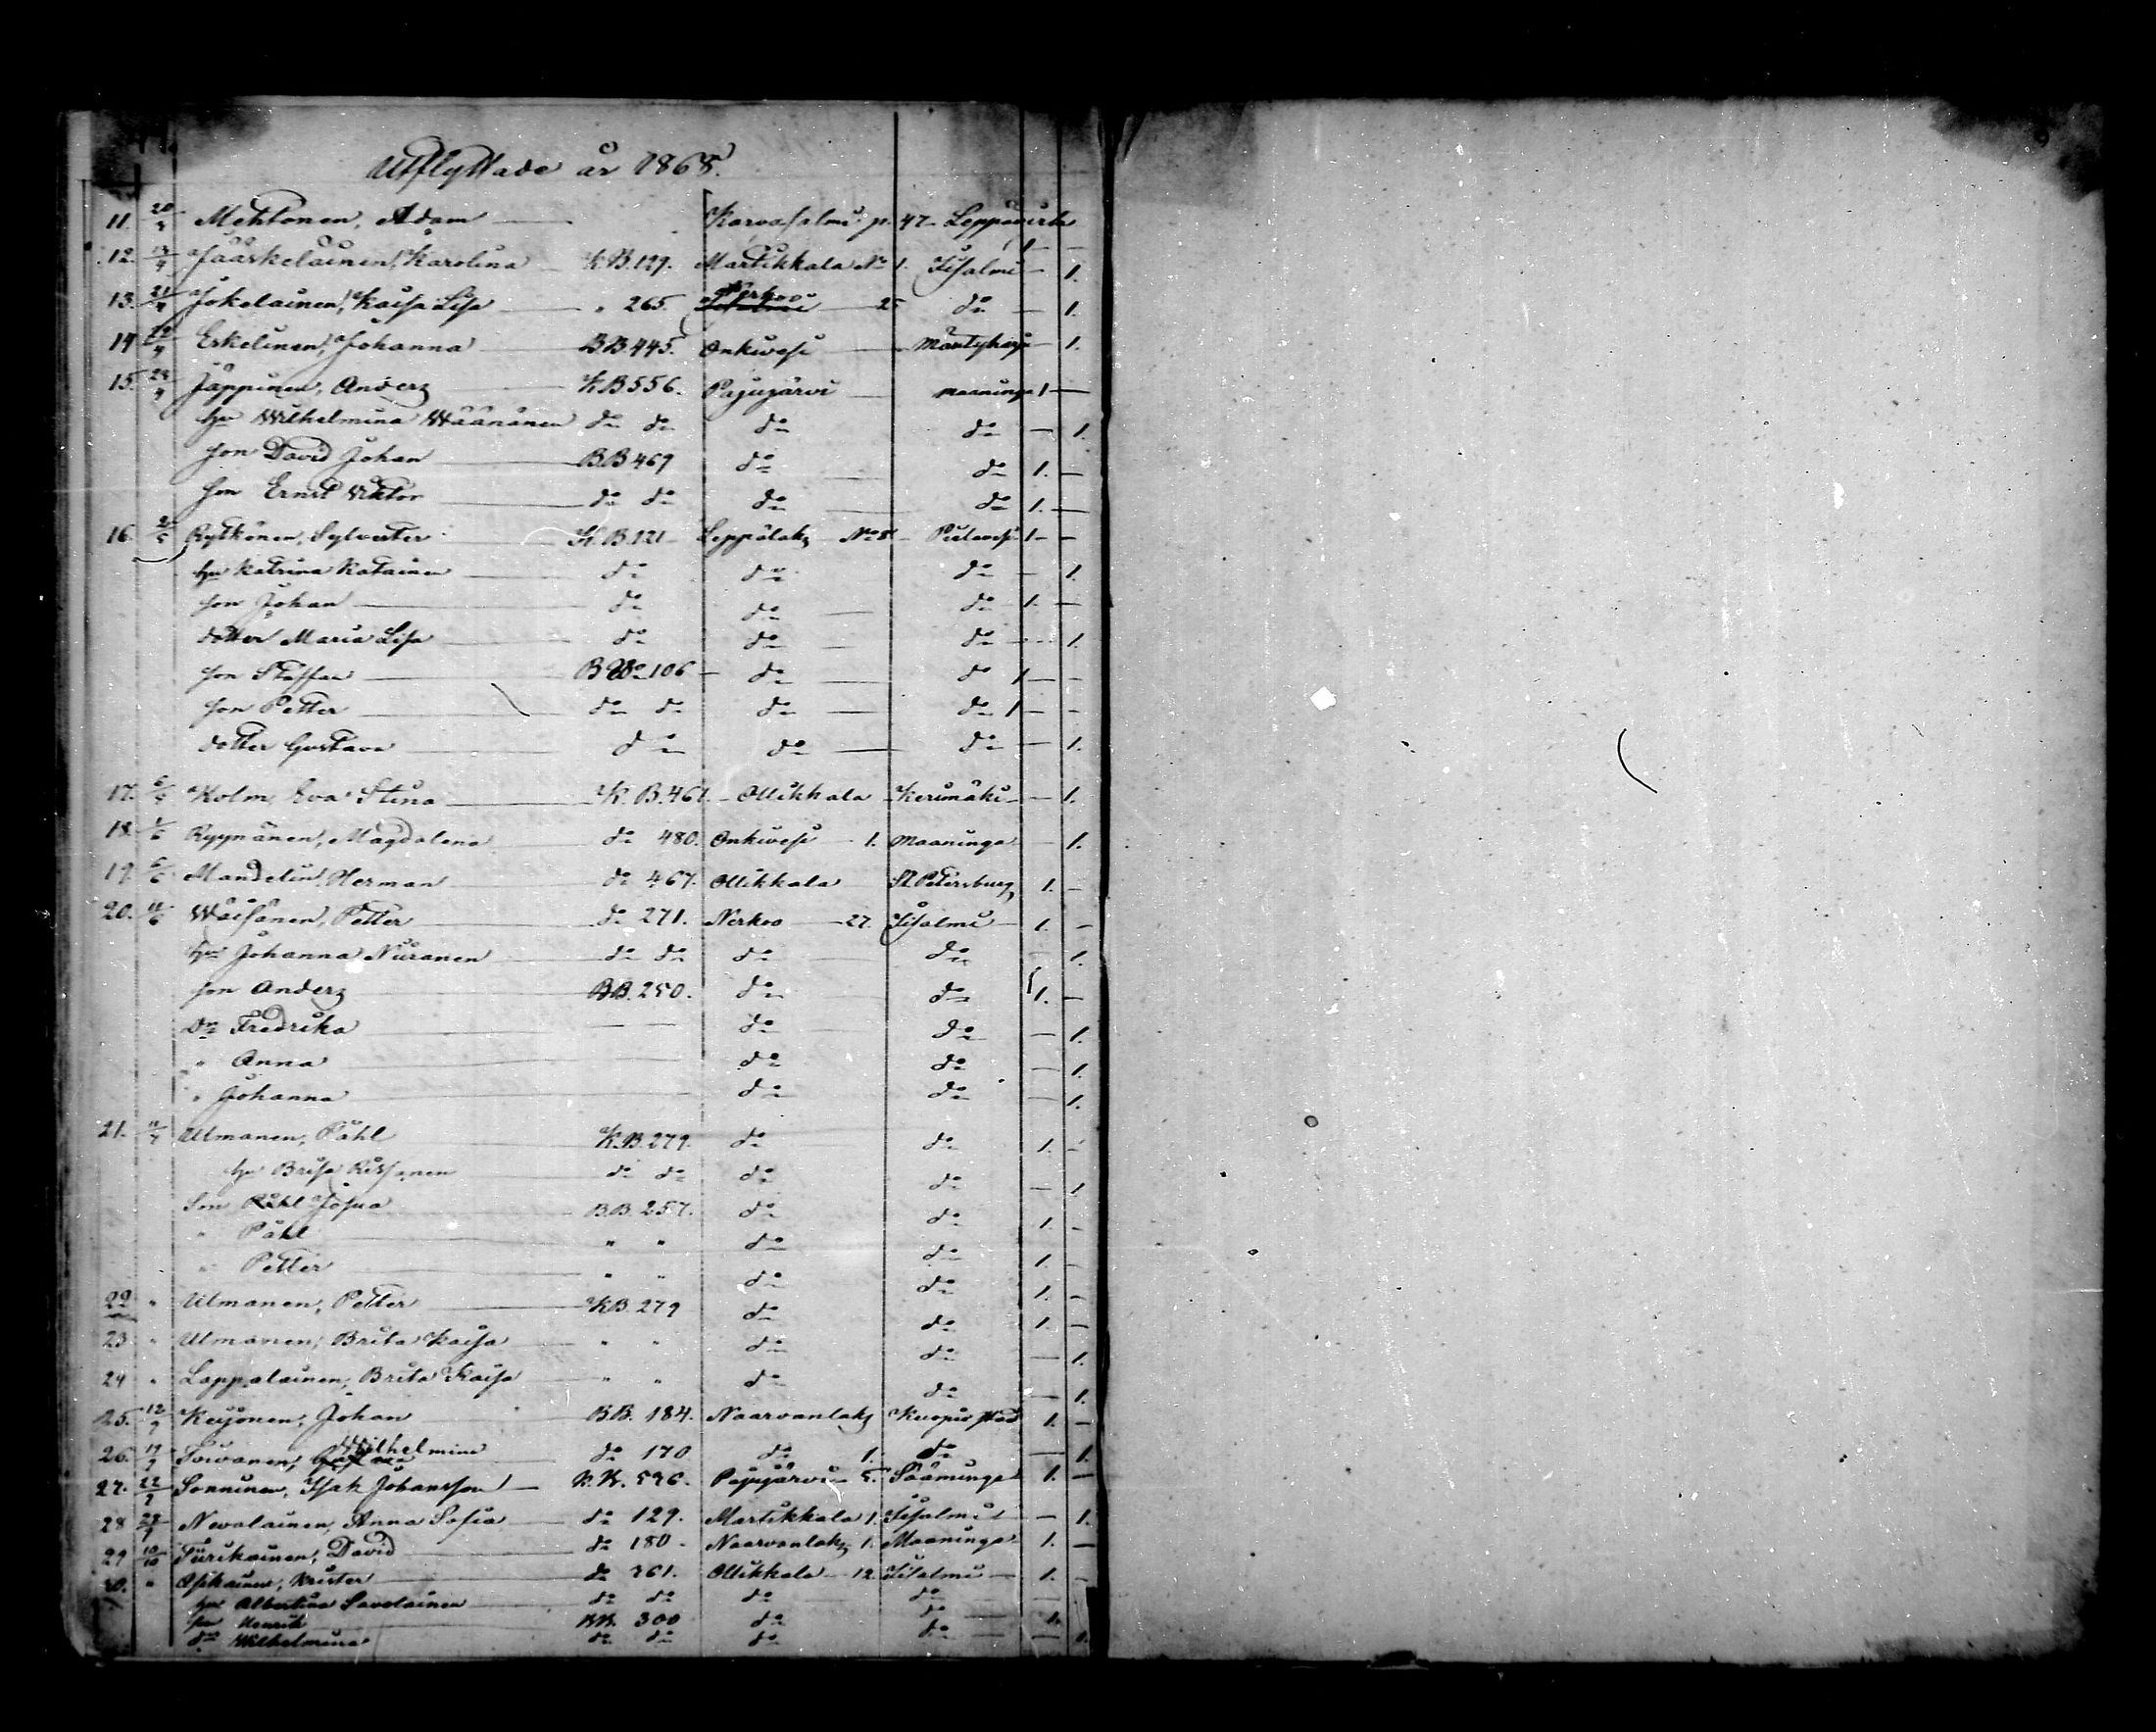 Utflyttade år 1868.
11. 20/3 Mehtonen, Adam — Karvasalmi p. 47 — Leppävirta 1 —
12. 13/4 Jääskeläinen, Karolina — K.B. 129. Martikkala No 1. Iisalmi — 1.
13. 21/4 Jokelainen, Kaisa Lisa — " 265. Nerkoo — 25 do — 1.
14 22/4 Eskelinen, Johanna — B.B. 445. Onkivesi — Mäntyharju — 1.
15. 24/4 Jäppinen, Anders — K.B. 556. Pajujärvi — Maaninga 1 —
hu Wilhelmina Wäänänen do do do do — 1.
son David Johan — B.B 469 do do 1. —
son Ernst Viktor — do do do do 1. —
16. 2/5 Rytkönen, Sylvester — K.B. 121 — Leppälaks No 8 — Pielaves 1 — —
hu Katrina Katainen — do do do — 1.
son Johan — do do — do 1. —
dotter Maria Lisa — do do — do — 1.
son Staffan — B 106 — do — do 1 —
son Petter — do do do — do 1 — —
dotter Gustava — do do — do — 1.
17. 5/5 Holm, Eva Stina — K.B. 467. — Ollikkala — Kerimäki — — 1.
18. 1/6 Ryynänen, Magdalena do 480. Onkivesi — 1. Maaninga — 1.
19. 5/6 Mandelin, Herman — do 467. Ollikkala St Petersburg 1. —
20. 11/6 Wäisänen, Petter — do 271. Nerkoo — 27. Iisalmi — 1. —
hu Johanna Niiranen — do do do do — 1.
son Anders — B.B. 250. do do 1. —
dr Fredrika — — do do — 1.
" Anna — do do — 1.
" Johanna — do do — 1.
21. 11/7 Ulmanen, Påhl K.B. 279. do do 1. —
hu Brita Rissanen do do do do — 1.
Son Josua B.B. 257. do do 1. —
" Påhl — " " do do 1. —
" Petter — " " do do 1. —
22 " Ulmanen, Petter — K.B. 279 do do 1. —
23. " Ulmanen, Brita Kaisa — " " do do — 1.
24 " Lappalainen, Brita Kaisa — " " do do — 1.
25. 12/9 Keijonen, Johan — B.B. 184. Naarvanlaks Kuopio stad 1. —
26. 19/9 Toivanen, Wilhelmina — do 170 do 1. do — 1.
27. 22/9 Sonninen, Isak Johansson — K.B. 596. Pajujärvi — 5. Sääminge 1. —
28 29/9 Nevalainen, Anna Sofia — do 129. Martikkala 1. Iisalmi — 1.
29 10/10 Tiirikainen, David — do 180 — Naarvanlaks 1. Maaninga 1. —
30. " Asikainen, Krister — do 361. Ollikkala — 12. Iisalmi — 1. —
hu Albertina Savolainen — do do do do —
son Henrik — B.B. 300 do do — 1.
dr Wilhelmina do do do do — — 1.